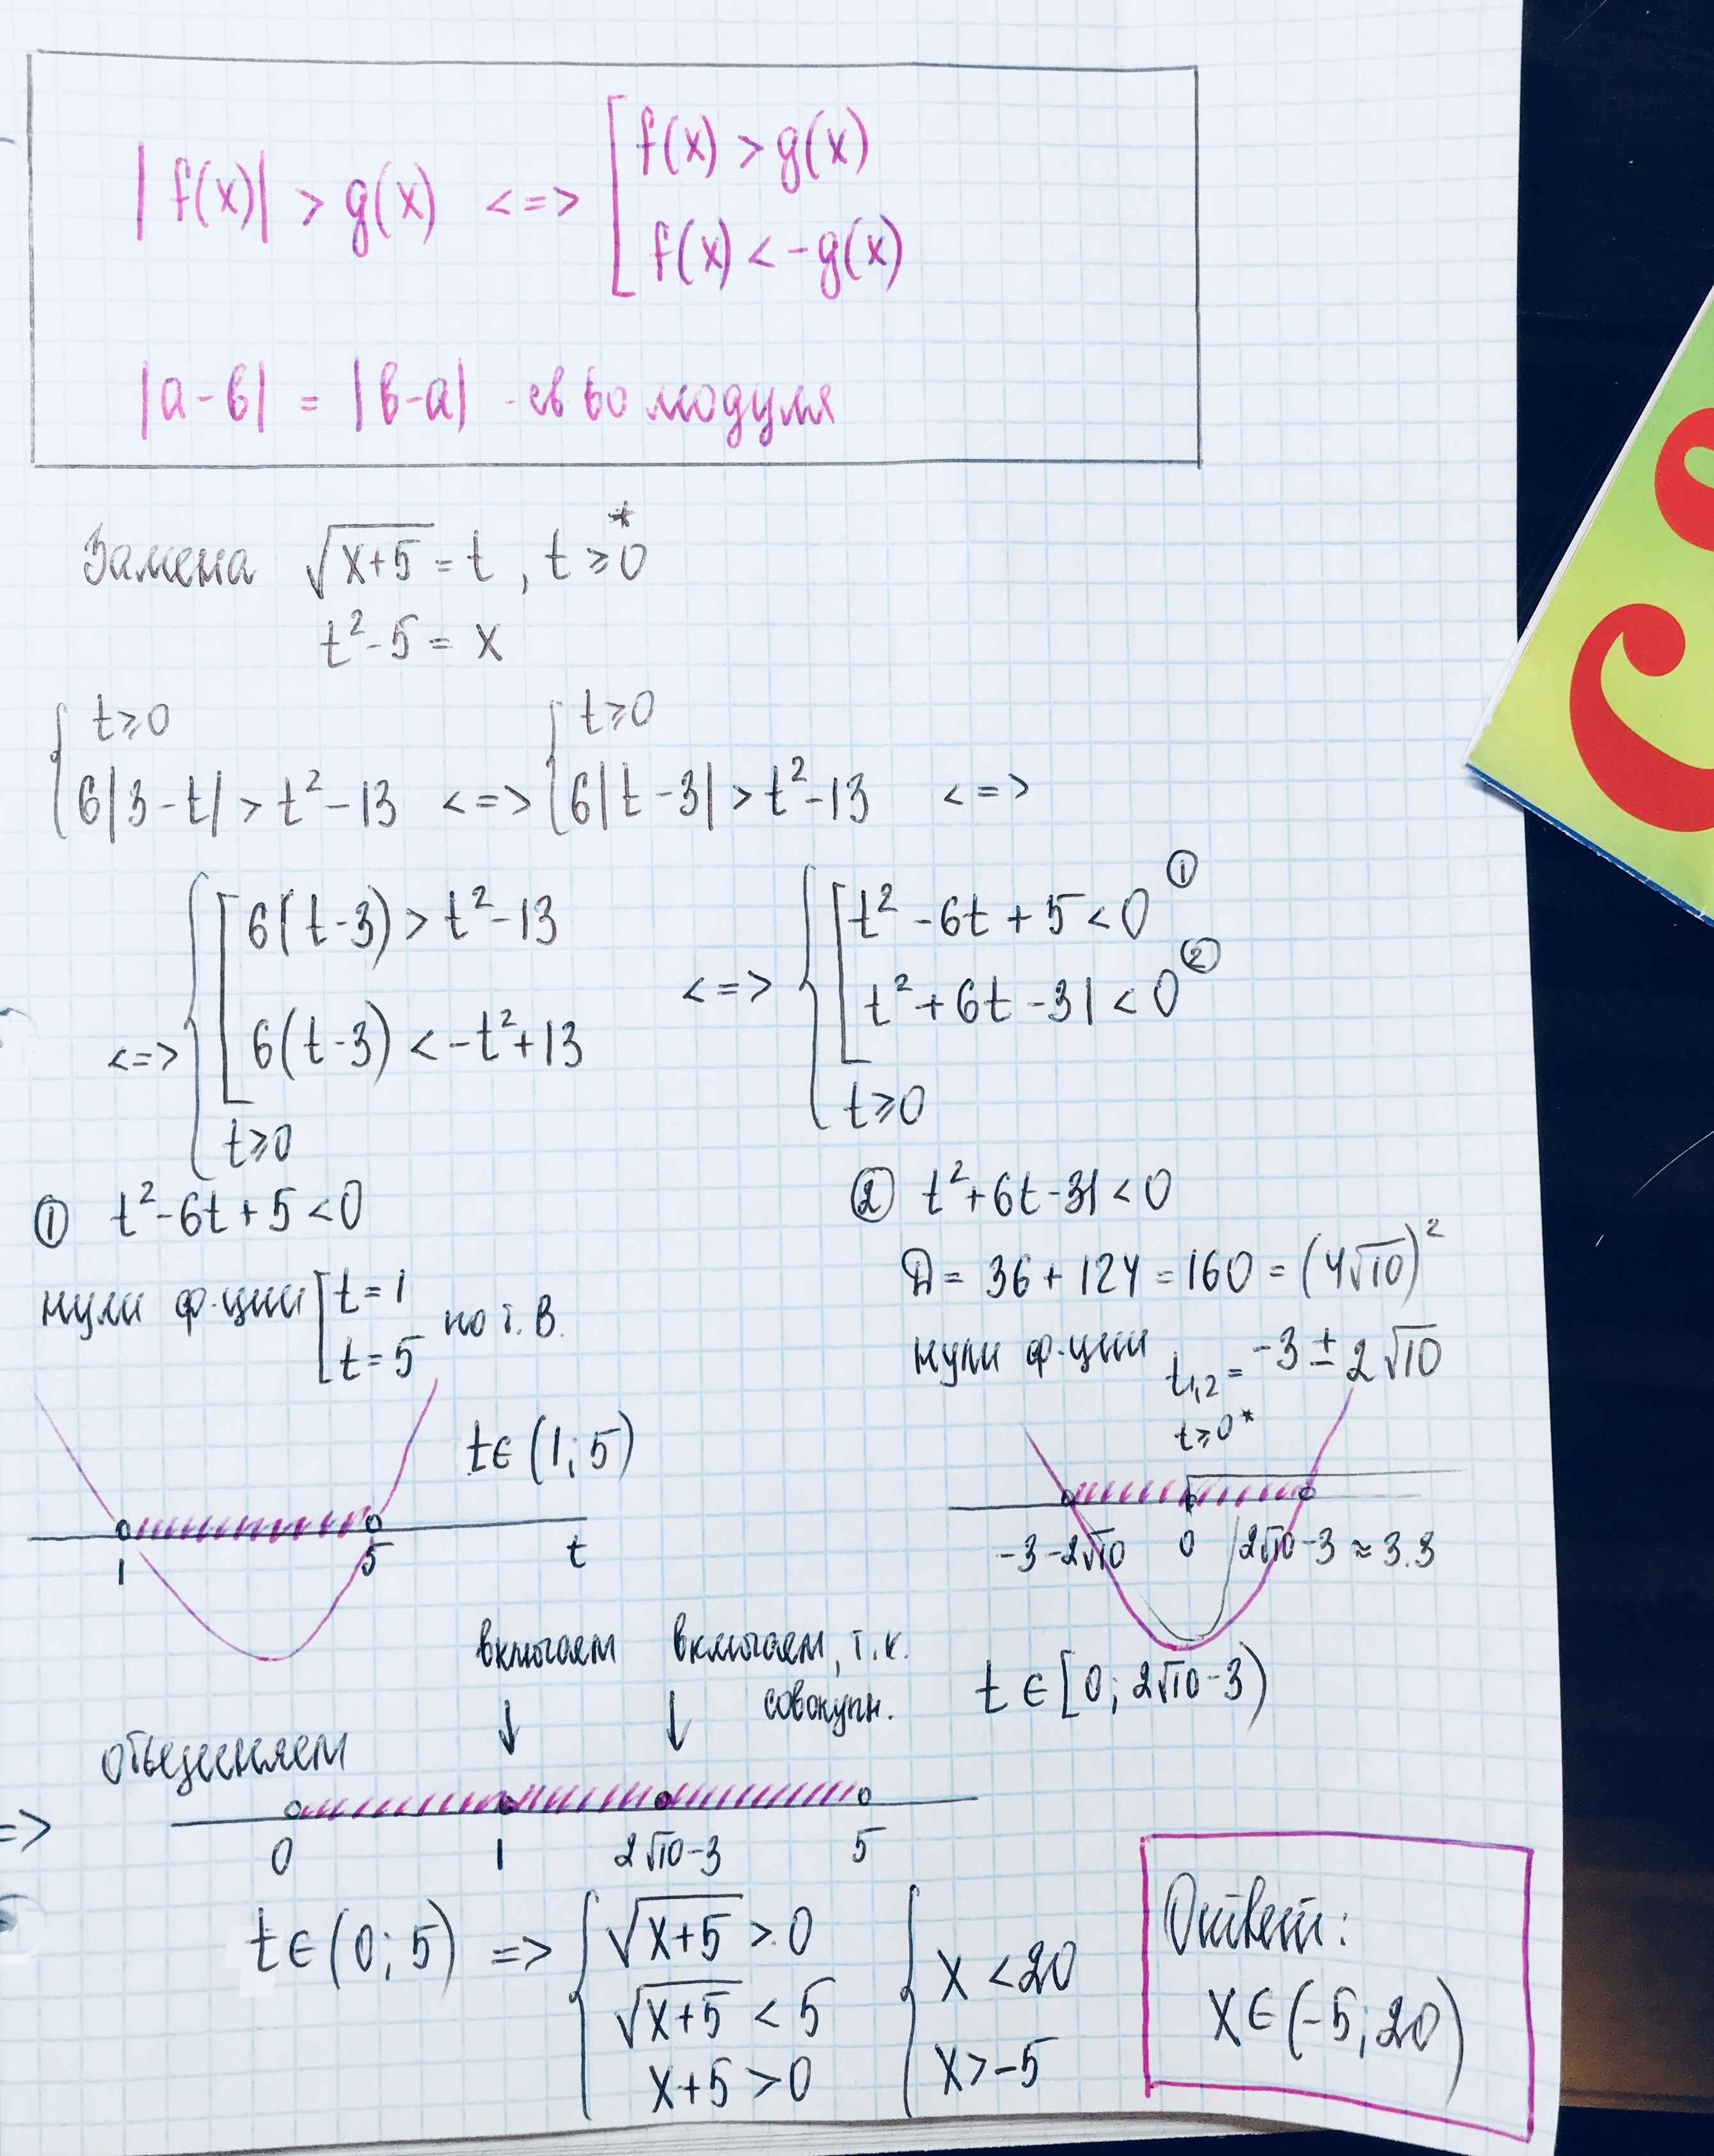 |f(x)| > g(x) <=> [ f(x) > g(x)
f(x) < -g(x)
|a-в| = |в-а| - св-во модуля
Замена √(x+5) = t, t ≥ 0 *
t² - 5 = x
{ t ≥ 0
6|3-t| > t² - 13 <=> { t ≥ 0
6|t-3| > t² - 13 <=>
<=> { [ 6(t-3) > t² - 13
6(t-3) < -t² + 13
t ≥ 0
<=> { [ t² - 6t + 5 < 0 ①
t² + 6t - 31 < 0 ②
t ≥ 0
① t² - 6t + 5 < 0
нули ф-ции [ t = 1
t = 5 по т. В.
t ∈ (1; 5)
1 5 t
② t² + 6t - 31 < 0
Д = 36 + 124 = 160 = (4√10)²
нули ф-ции t1,2 = -3 ± 2√10
t ≥ 0 *
-3-2√10 0 2√10-3 ≈ 3.3
t ∈ [0; 2√10-3)
включаем включаем, т.к.
совокупн.
объединяем
=> 0 1 2√10-3 5
t ∈ (0; 5) => { √(x+5) > 0
√(x+5) < 5
x+5 > 0
{ x < 20
x > -5
Ответ:
x ∈ (-5; 20)